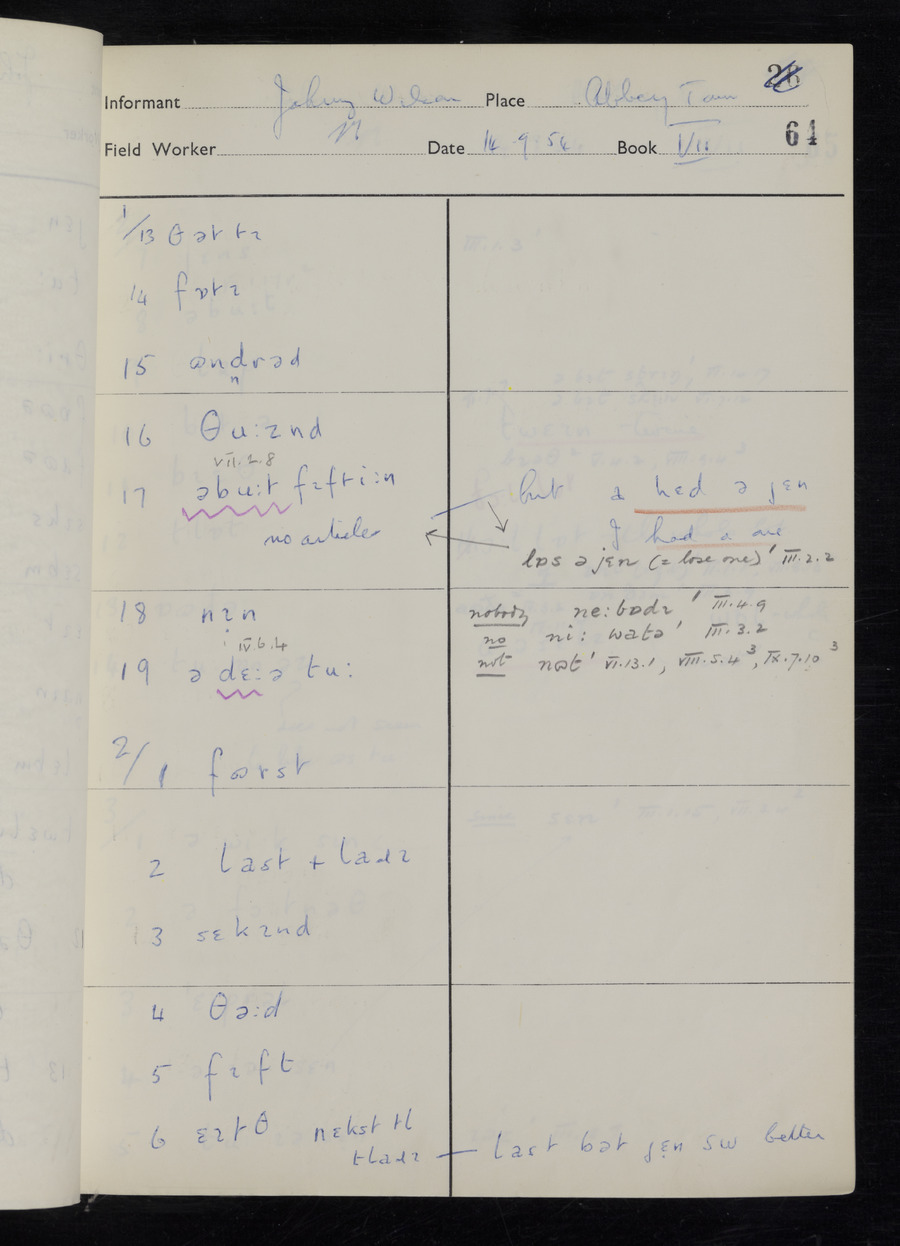 28
Informant Johnny Wilson Place Abbey Town
Field Worker N Date 14.9.54 Book VII 64
1/13 θərtɪ
14 fɒtɪ
15 ɷndrəd
n
16 θu:ɪnd
VII.2.8
17 əbu:t fɪfti:n
no article
but a hɛd ə jɛn
I had a one
lɒs ə jɛn (= lose one)' III.2.2
18 nɪn
i IV.6.4
19 ə dɛ:ə tu:
nobody ne:bɒdɪ ' III.4.9
no ni: watə' III.3.2
not nɒt' VI.13.1, VIII.5.4³, IX.7.10³
2/1 fɷrst
2 last + ladɪ
3 sɛkɪnd
4 θə:d
5 fɪft
6 ɛɪtθ nɛkst tl
tladɪ — last bət jɛn sw better